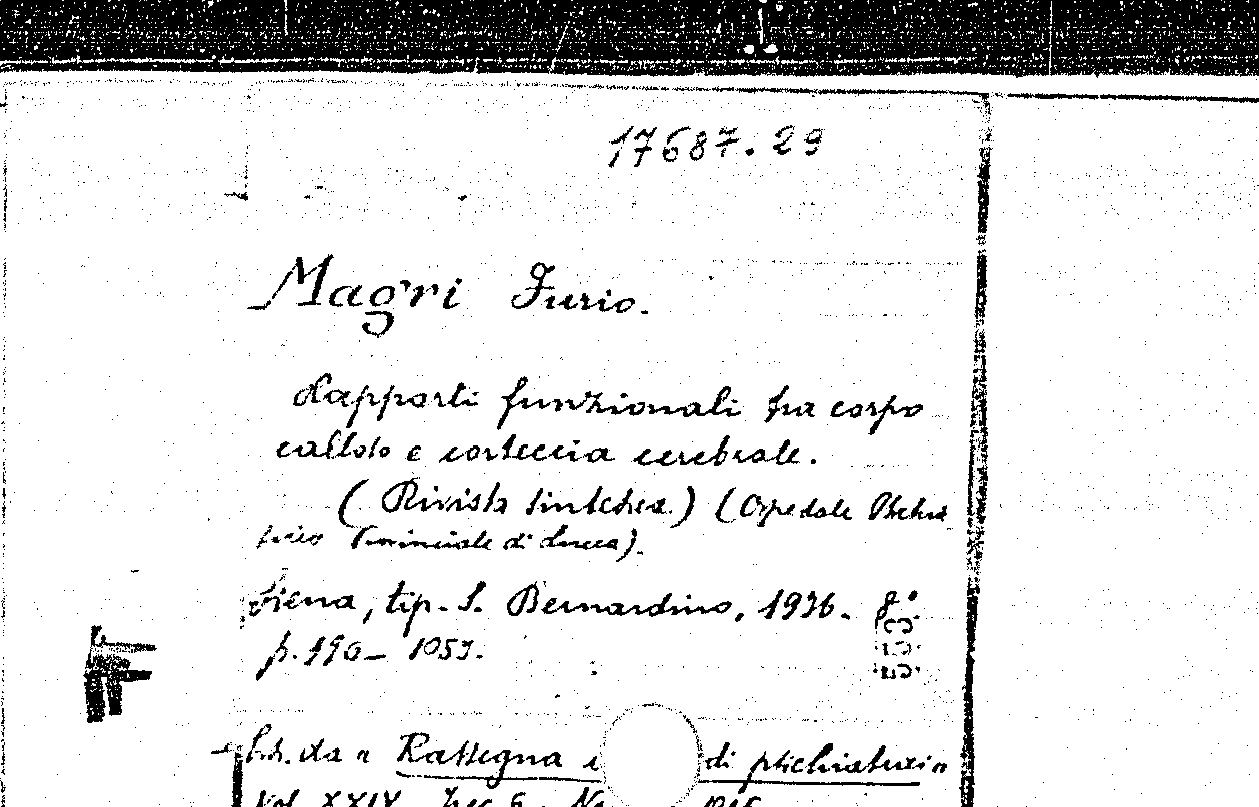 17687.29
Magri Furio.
Rapporti funzionali fra corpo
calloso e corteccia cerebrale.
(Rivista sintetica) (Ospedale Psichia
trico Provinciale di Lucca).
Siena, tip. S. Bernardino, 1936. 8°
p. 990-1053.
da " Rassegna di psichiatria"
Vol. XXIV